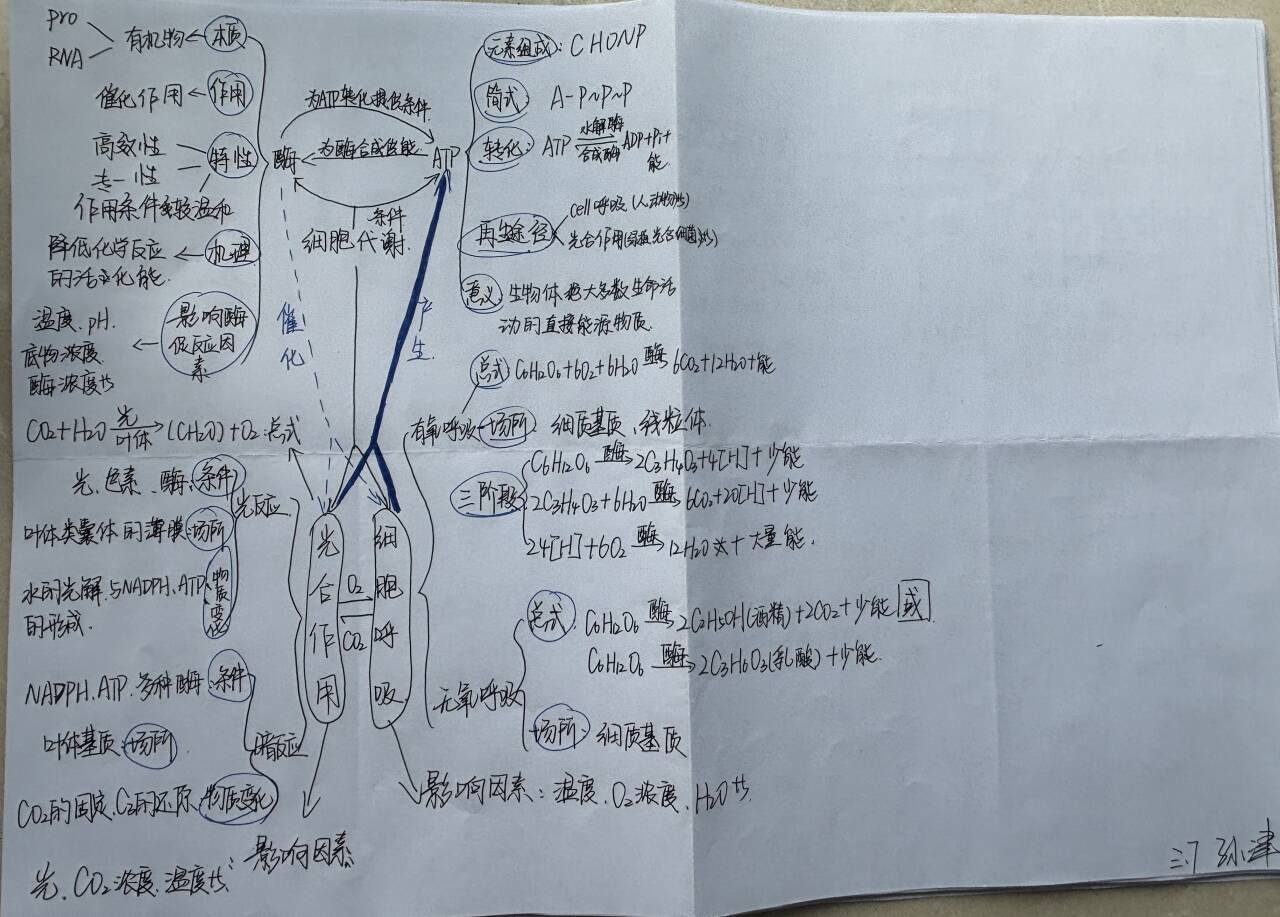 pro
RNA
有机物 本质
催化作用 作用
高效性
专一性
特性
作用条件较温和
降低化学反应
的活化能
机理
温度、pH、
底物浓度
酶浓度
影响酶
促反应因
素
酶
为ATP转化提供条件
为酶合成供能
ATP
条件
细胞代谢
催化
产生
元素组成: CHONP
简式: A-P~P~P
转化: ATP 水解酶 合成酶 ADP+Pi+
能
再生途径
cell呼吸(人动物等)
光合作用
意义: 生物体绝大多数生命活
动的直接能源物质
总式: C6H12O6+6O2+6H2O 酶→ 6CO2+12H2O+能
有氧呼吸 场所: 细质基质、线粒体
三阶段
C6H12O6 酶→ 2C3H4O3+4[H]+少能
2C3H4O3+6H2O 酶→ 6CO2+20[H]+少能
24[H]+6O2 酶→ 12H2O+大量能
CO2+H2O 光 叶体→ (CH2O)+O2:总式
光、色素、酶:条件
叶体类囊体的薄膜:场所
水的光解、与NADPH、ATP
的形成
物质变化
光反应
光合作用
O2
CO2
细胞呼吸
NADPH、ATP、多种酶:条件
叶体基质:场所
CO2的固定、C3的还原:物质变化
暗反应
影响因素
光、CO2浓度、温度等
无氧呼吸
总式: C6H12O6 酶→ 2C2H5OH(酒精)+2CO2+少能 或
C6H12O6 酶→ 2C3H6O3(乳酸)+少能
场所: 细质基质
影响因素: 温度、O2浓度、H2O等